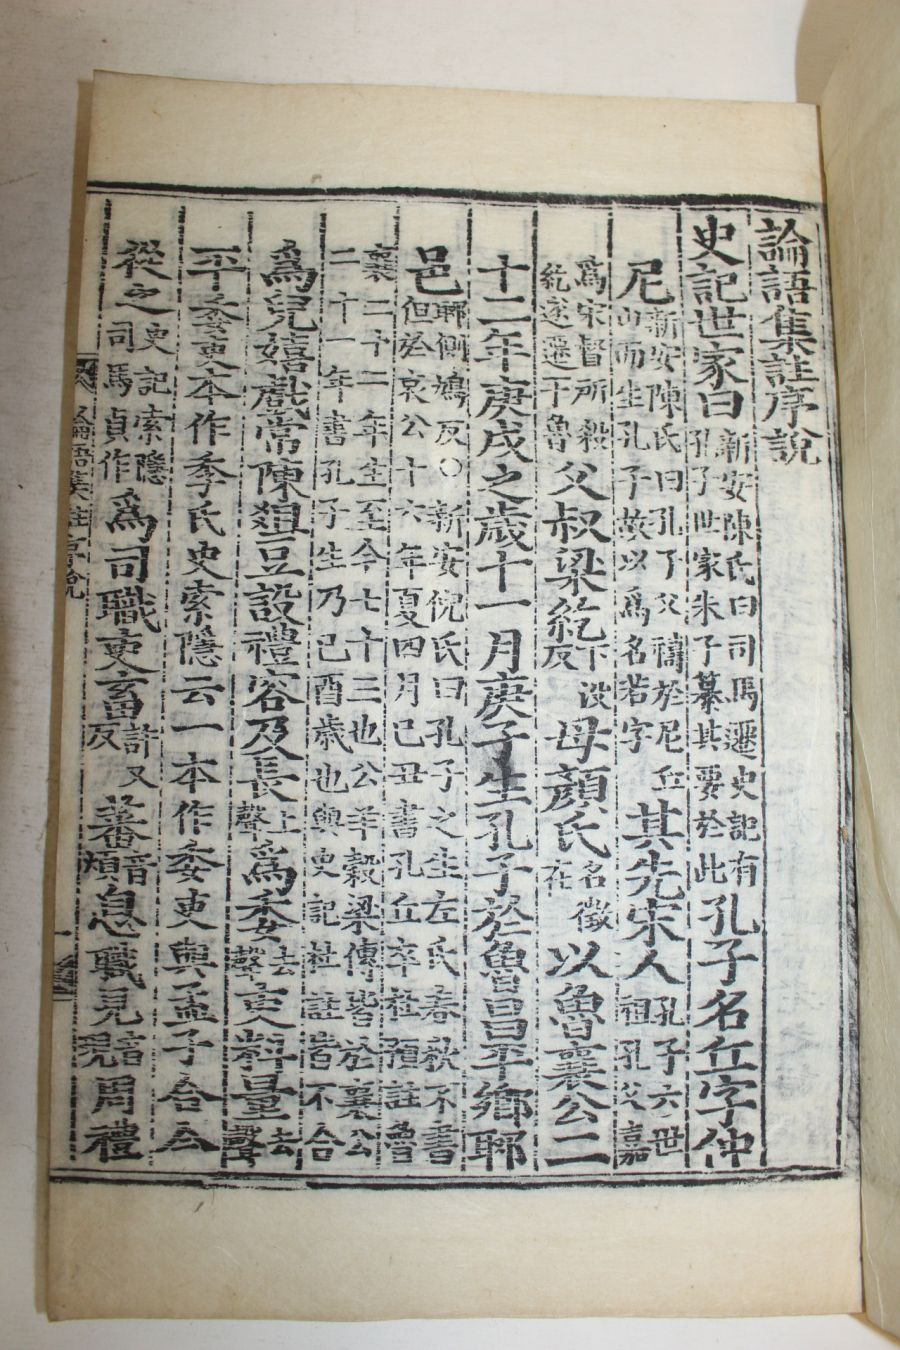 論語集註序說
史記世家曰新安陳氏曰司馬遷史記有孔子世家朱子纂其要於此孔子名丘字仲
尼新安陳氏曰孔子父禱於尼丘山而生孔子故以爲名若字其先宋人孔子六世祖孔父嘉
爲宋督所殺紇遂遷于魯父叔梁紇下沒反母顔氏名徵在以魯襄公二
十二年庚戌之歲十一月庚子生孔子於魯昌平鄕郰
邑郰側鳩反○新安倪氏曰孔子之生左氏春秋不書但於哀公十六年夏四月己丑書孔丘卒杜預註魯
襄二十二年生至今七十三也公羊穀梁傳皆於襄公二十一年書孔子生乃己酉歲也與史記杜註皆不合
爲兒嬉戲常陳俎豆設禮容及長上聲爲委去聲吏料量去聲
平委吏本作季氏史索隱云一本作委吏與孟子合今
從之史記索隱司馬貞作爲司職吏畜許又反蕃音煩息職見音現周禮
論語集註序說
一